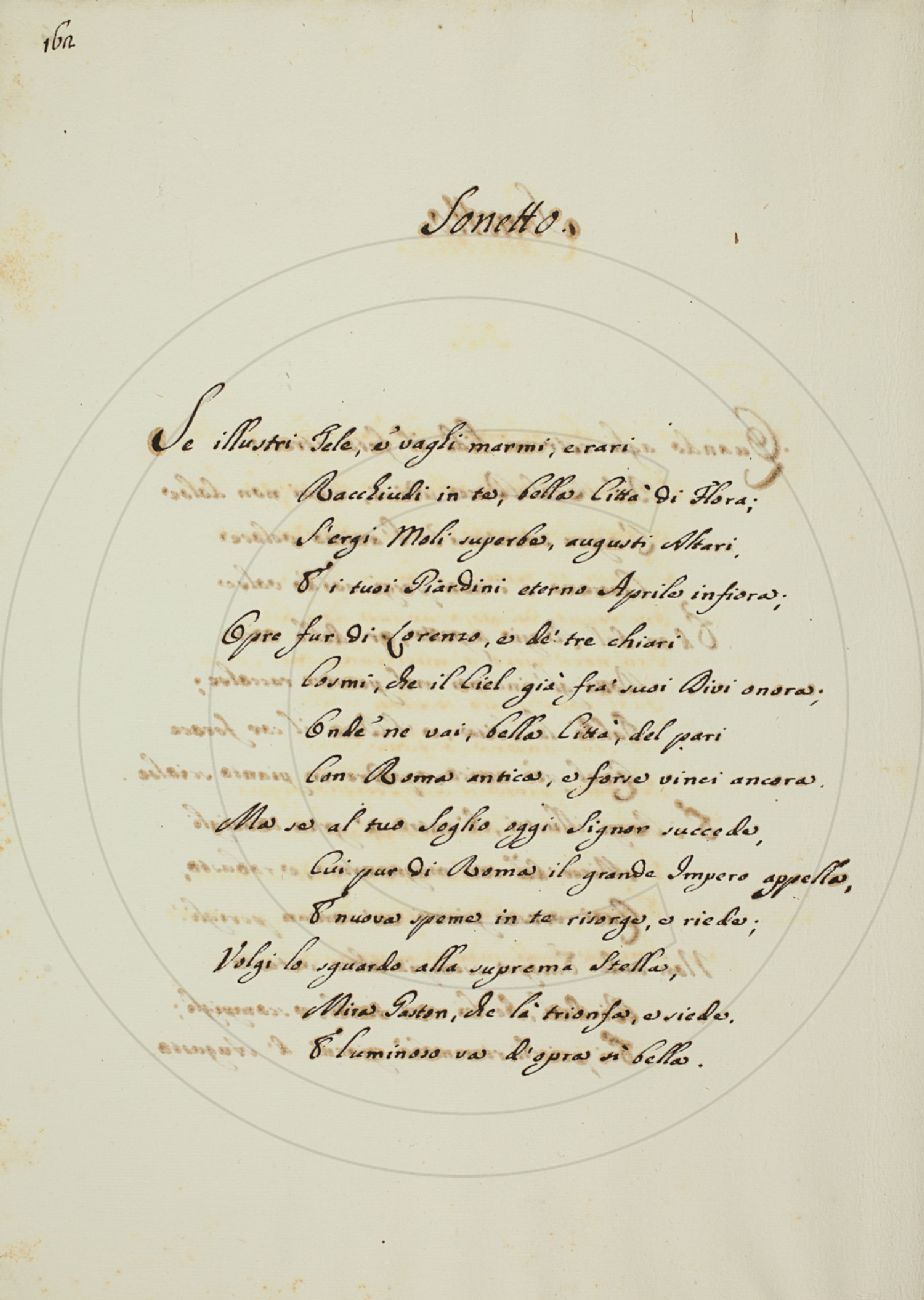 162
Sonetto.
Se illustri Tele, e vaghi marmi, e rari
Racchiudi in te, bella Città di Flora;
S'ergi Moli superbe, augusti Altari,
E i tuoi Giardini eterno Aprile infiora;
Opre fur di Lorenzo, e de' tre chiari
Cosmi, che il Ciel già fra' suoi Divi onora;
Onde ne vai, bella Città, del pari
Con Roma antica, e forse vinci ancora.
Ma se al tuo Soglio oggi Signor succede,
Cui pur di Roma il grande Impero appella,
E nuova speme in te risorge, e riede;
Volgi lo sguardo alla suprema Stella,
Mira Gaston, che là trionfa, e siede.
E luminoso va d'opra sì bella.